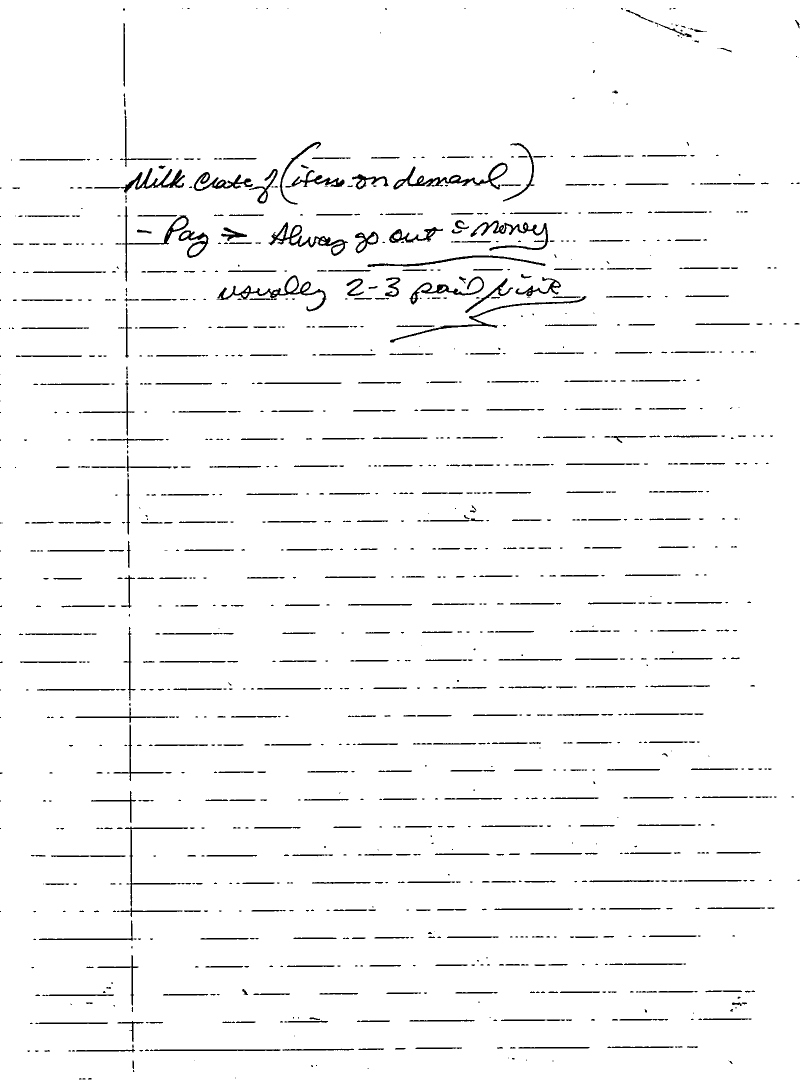 Milk crate of (items on demand)
- Pay ⇒ Always go out c̄ money
usually 2-3 paid/visit